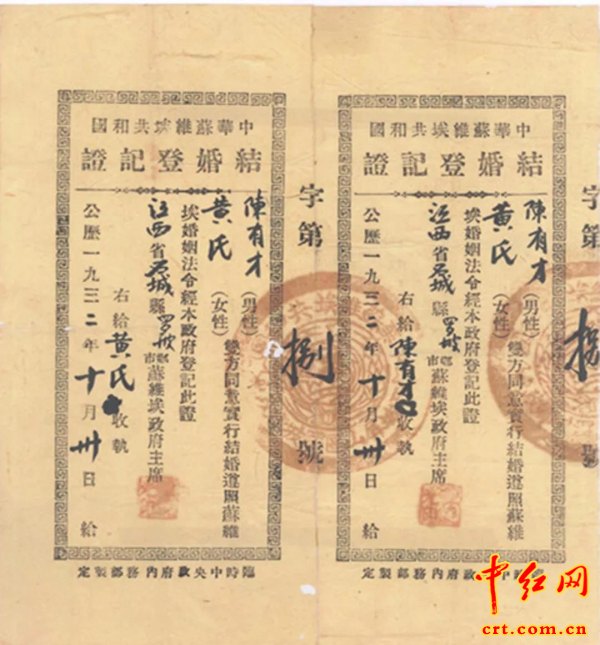 字第號
中華蘇維埃共和國
結婚登記證
陳有才(男性)
黃氏(女性)
雙方同意實行結婚遵照蘇維
埃婚姻法令經本政府登記此證
江西省石城縣鄉市蘇維埃政府主席
右給陳有才收執
公歷一九三二年十月卅日給
中央政府內務部製定
字第捌號
中華蘇維埃共和國
結婚登記證
陳有才(男性)
黃氏(女性)
雙方同意實行結婚遵照蘇維
埃婚姻法令經本政府登記此證
江西省石城縣鄉市蘇維埃政府主席
右給黃氏收執
公歷一九三二年十月卅日給
臨時中央政府內務部製定
中红网
crt.com.cn